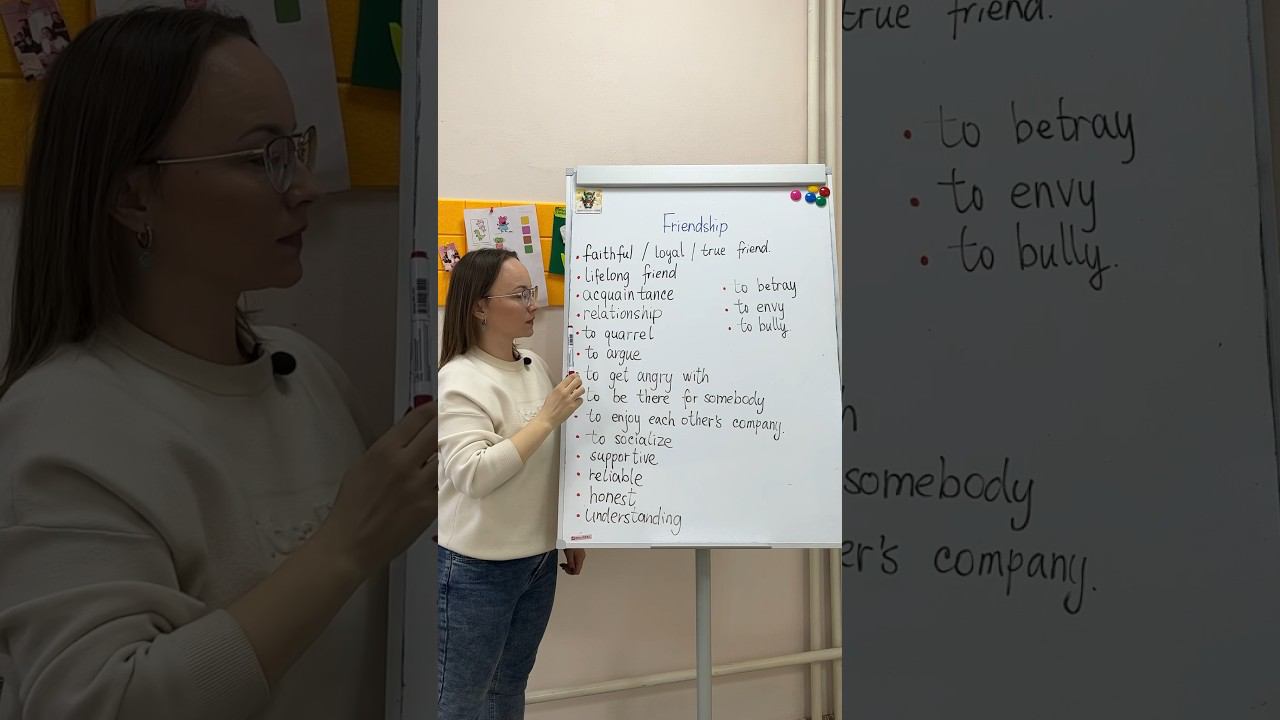 Friendship
faithful / loyal / true friend.
lifelong friend
acquaintance
relationship
to quarrel
to argue
to get angry with
to be there for somebody
to enjoy each other's company.
to socialize
supportive
reliable
honest
understanding
to betray
to envy
to bully.
true friend.
to betray
to envy
to bully.
somebody
er's company.